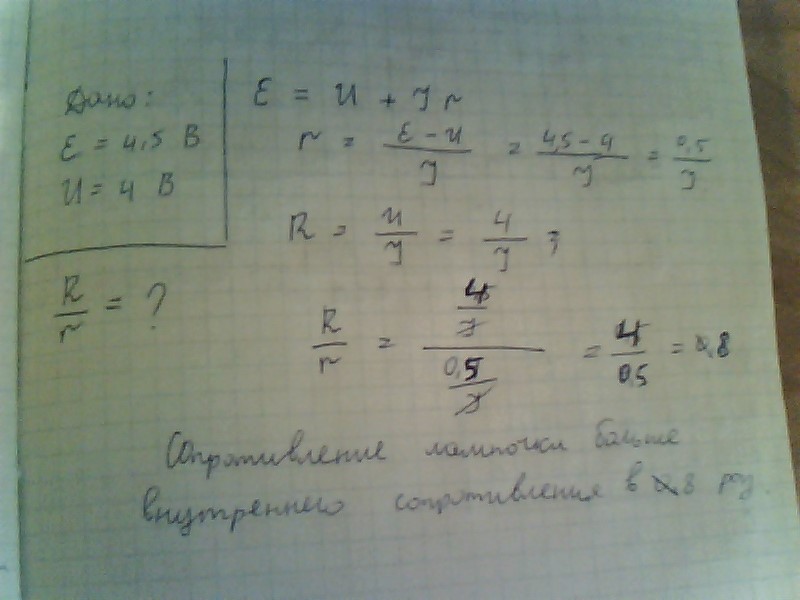 Дано:
ε = 4,5 В
U = 4 В
R/r = ?
ε = U + I r
r = (ε - U)/I = (4,5 - 4)/I = 0,5/I
R = U/I = 4/I ;
R/r = (4/I)/(0,5/I) = 4/0,5 = 8
Сопротивление лампочки больше
внутреннего сопротивления в 8 раз.